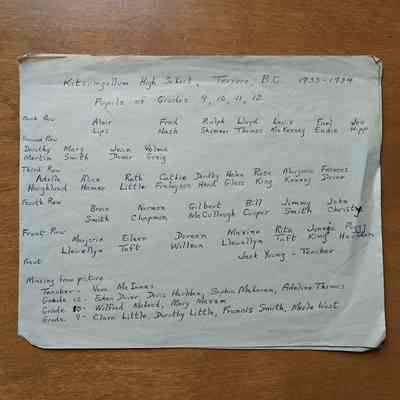 Kitsumgallum High School, Terrace, B.C. 1933-1934
Pupils of Grades 9, 10, 11, 12
Back Row Fred Ralph Lloyd Louis Earl Joe
Lips Nash Skinner Thomas McKenney Eadie Hipp
Second Row
Dorothy Mary Jean Velma
Martin Smith Dover Greig
Third Row
Adella Alice Ruth Cathie Dorothy Helen Rose Marjorie Frances
Haughland Hamer Little Finlayson Head Glass King Kenney Dover
Fourth Row
Brian Norman Gilbert Bill Jimmy John
Smith Chapman McCullough Cooper Smith Christy
Front Row
Marjorie Eileen Doreen Maxine Rita
Llewellyn Taft Willson Llewellyn Taft King
Jack Young - Teacher
Missing from picture -
Teacher - Vera McInnes
Grade 12 - Doris Sophia Adeline Thomas
Grade 10 - Wilfred Mary
Grade 9 - Clara Little, Dorothy Little, Francis Smith, Merle West